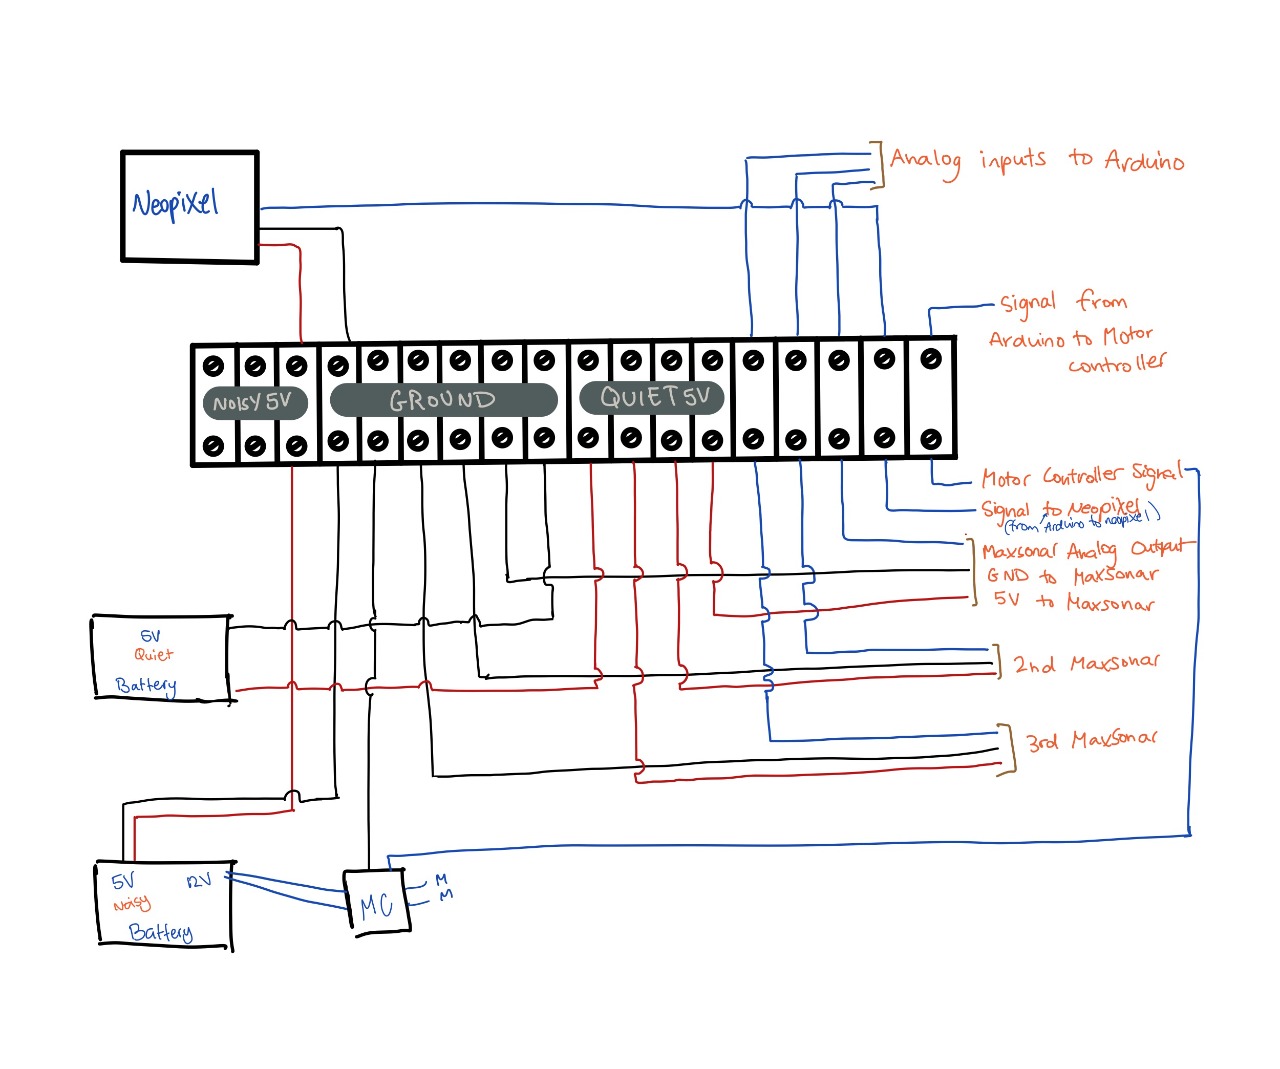 Neopixel
Analog inputs to Arduino
Signal from
Arduino to Motor
controller
NOISY 5V
GROUND
QUIET 5V
Motor Controller Signal
Signal to Neopixel
(from Arduino to neopixel)
Maxsonar Analog Output
GND to MaxSonar
5V to Maxsonar
2nd Maxsonar
3rd MaxSonar
5V
Quiet
Battery
5V 12V
Noisy
Battery
MC
M
M